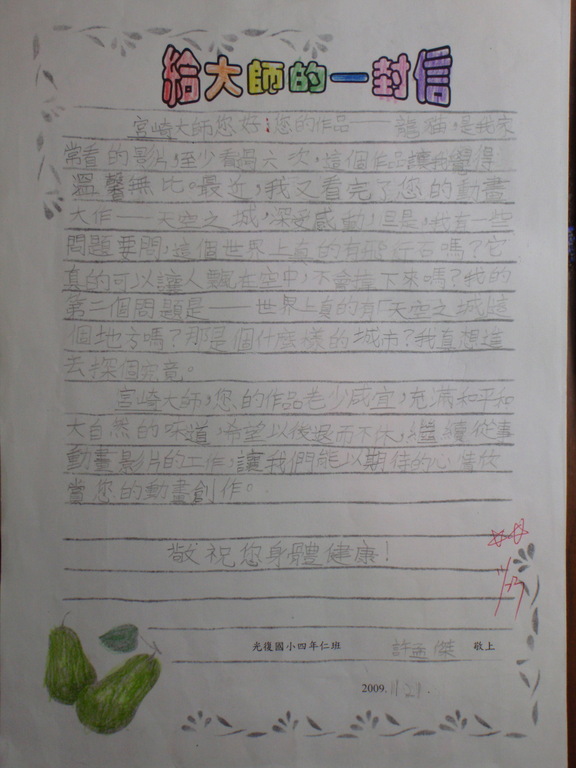 給大師的一封信
宮崎大師您好:您的作品——龍貓,是我家
常看的影片,至少看過六次,這個作品讓我覺得
溫馨無比。最近,我又看完了您的動畫
大作——天空之城,深受感動,但是,我有一些
問題要問,這個世界上真的有飛行石嗎?它
真的可以讓人飄在空中,不會摔下來嗎?我的
第二個問題是——世界上真的有「天空之城」這
個地方嗎?那是個什麼樣的城市?我真想進
去探個究竟。
宮崎大師,您的作品老少咸宜,充滿和平和
大自然的味道,希望以後退而不休,繼續從事
動畫影片的工作,讓我們能以期待的心情欣
賞您的動畫創作。
敬祝您身體健康!
11/27
光復國小四年仁班 許孟傑 敬上
2009.11.21.